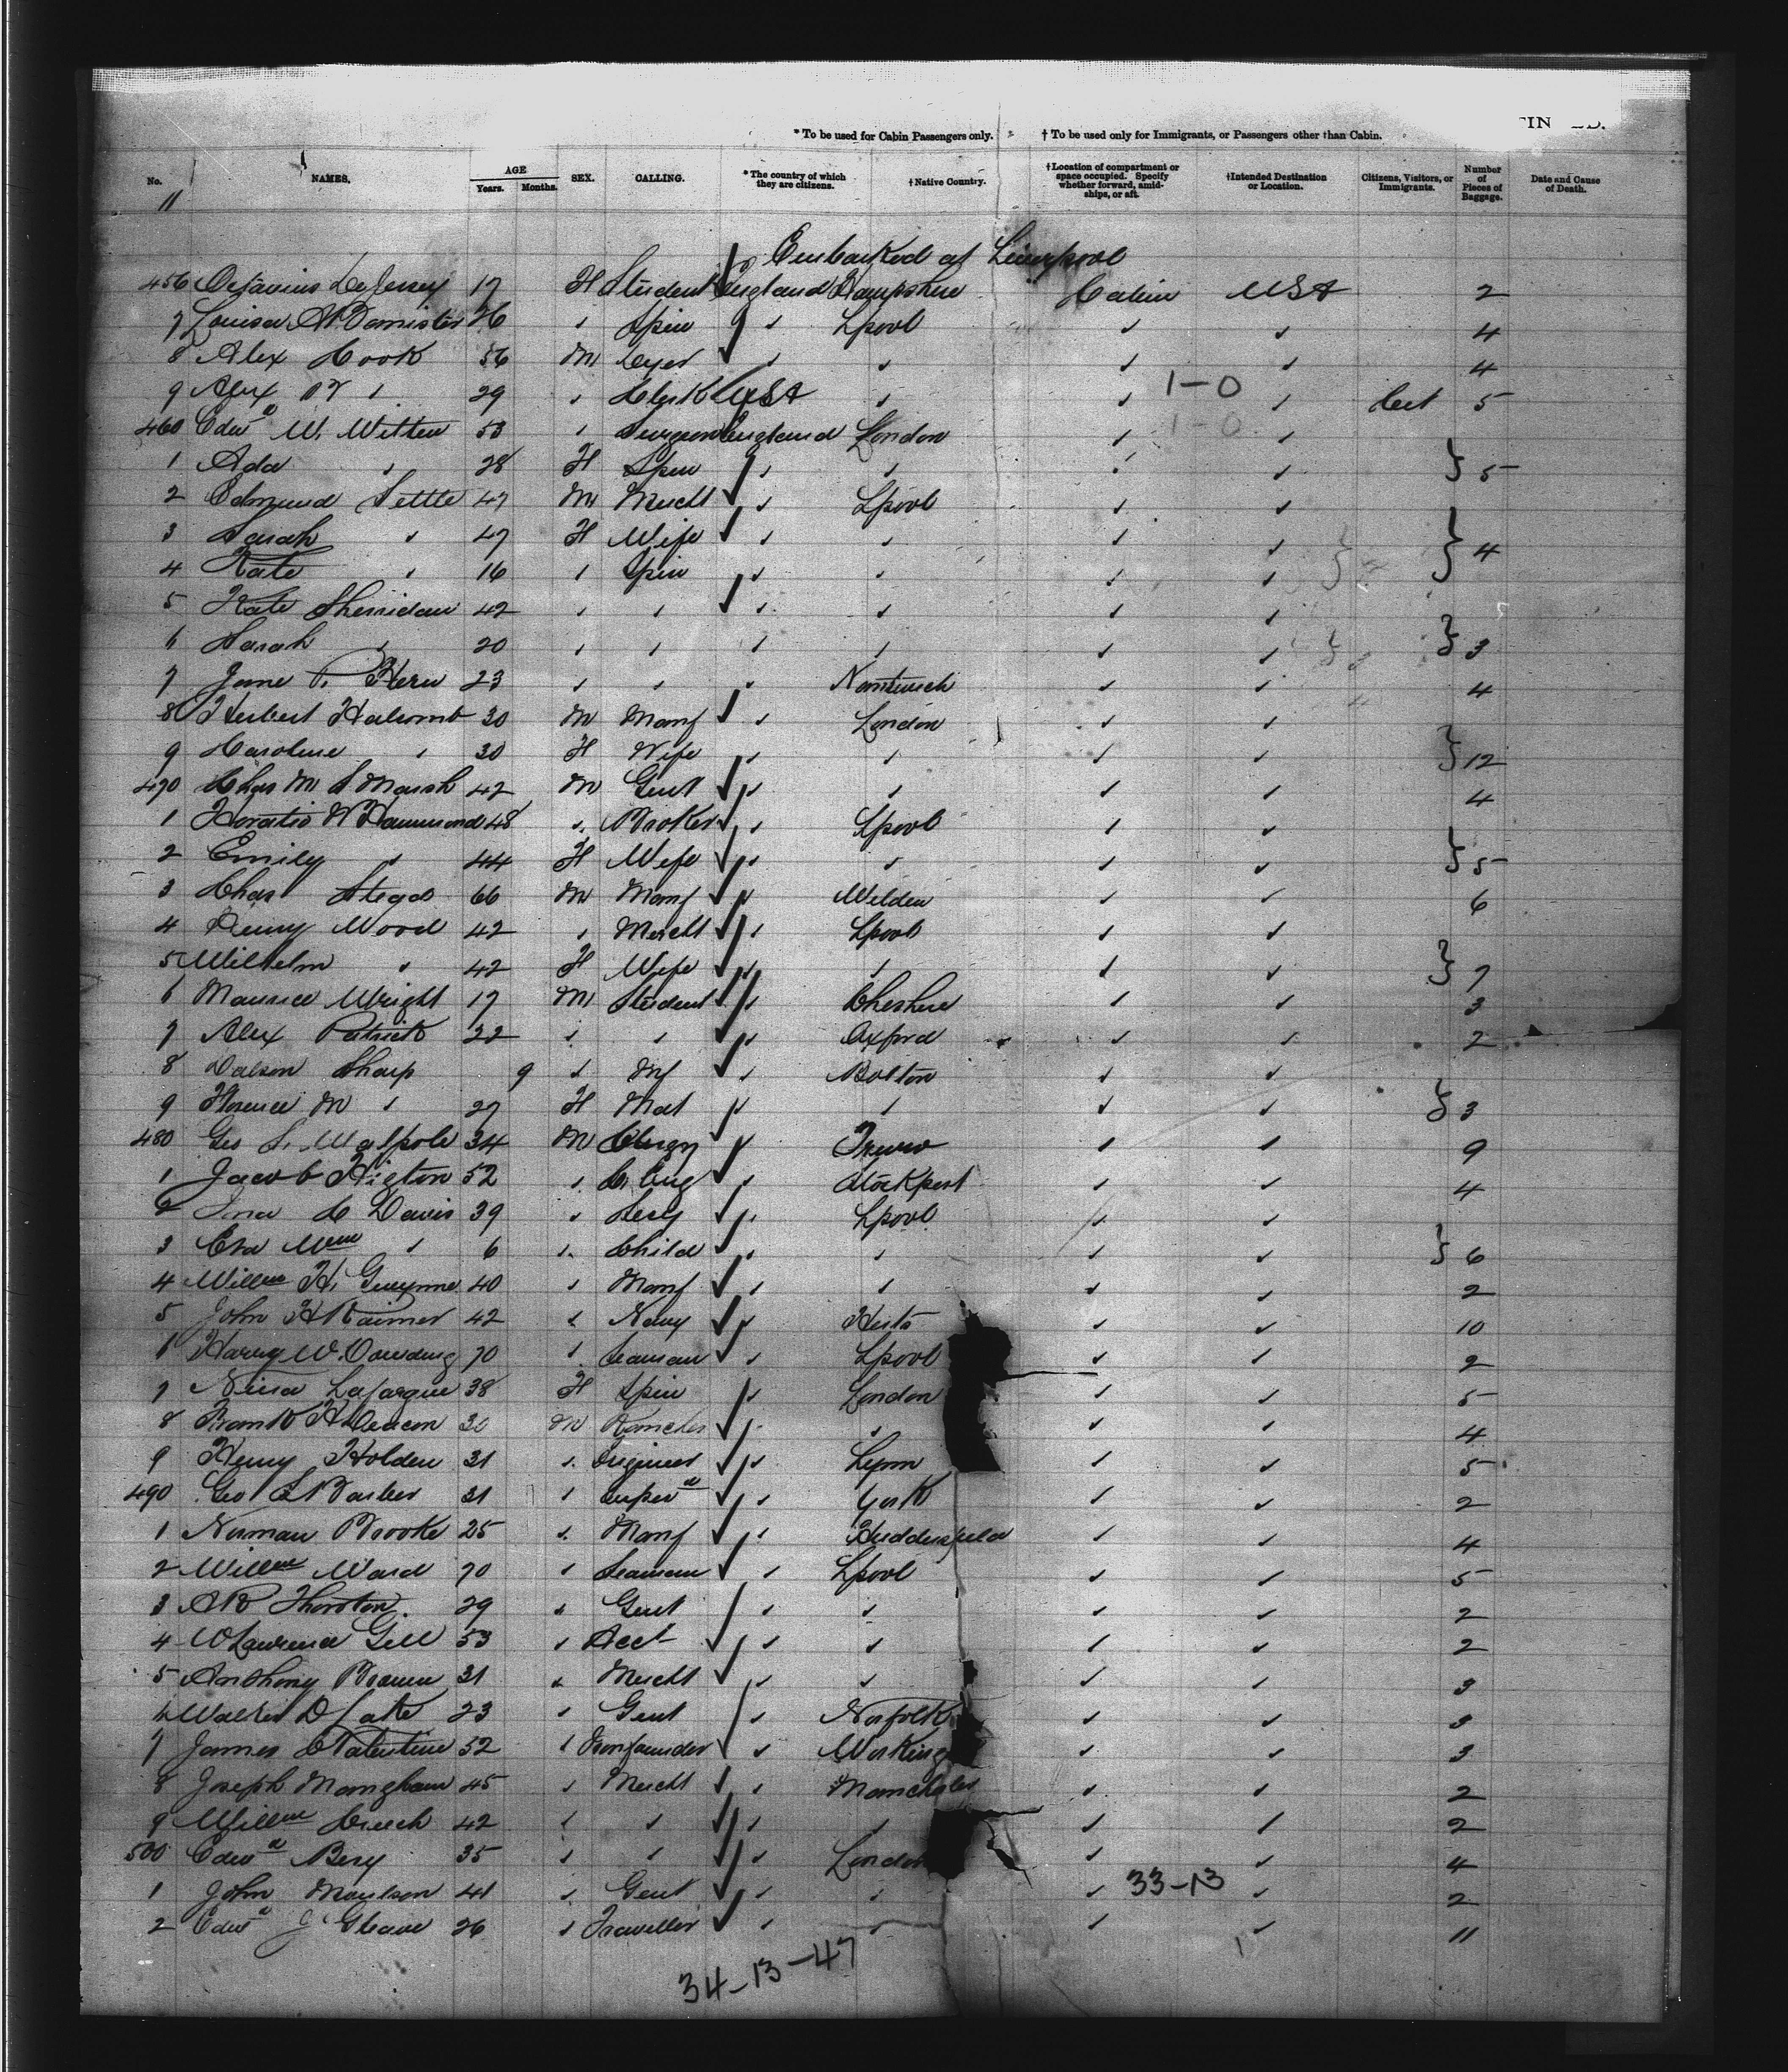 * To be used for Cabin Passengers only. † To be used only for Immigrants, or Passengers other than Cabin.
No. NAMES. AGE Years. Months. SEX. CALLING. * The country of which they are citizens. † Native Country. † Location of compartment or space occupied. Specify whether forward, amidships, or aft. † Intended Destination or Location. Citizens, Visitors, or Immigrants. Number of Pieces of Baggage. Date and Cause of Death.
11
Embarked at Liverpool
456 Octavius 17 Student England Hampshire Cabin USA 2
7 Louisa 26 Spin Lpool 4
8 Alex Cook 56 M Dyer 4
9 Alex 29 Clerk USA 1-0 5
460 Edwd W. Witten 53 Surgeon England London 1-0
1 Ada 28 F Spin } 5
2 Edmund Settle 47 M Mercht Lpool
3 Sarah 47 F Wife } 4
4 Kate 16 Spin
5 Kate Sheridan 42
6 Sarah 20 } 3
7 Jane P. Kern 23 Nantwich 4
8 Herbert Halcomb 30 M Manf London
9 Caroline 30 F Wife } 12
470 Chas M S Marsh 42 M Gent 4
1 Horatio W Hammond 48 Broker Lpool
2 Emily 44 F Wife } 5
3 Chas 66 M Manf 6
4 Henry Wood 42 Mercht Lpool
5 Wilhelm 42 F Wife } 7
6 Maurice Wright 17 M Student Cheshire 3
7 Alex Patrick 22 Oxford 2
8 Sharp 9 Inf Bolton
9 Florence M 27 F Mat } 3
480 Geo S. Walpole 34 M Clergy Truro 9
1 Jacob Higton 52 C. Eng Stockport 4
2 C Davis 39 Secy Lpool
3 6 Child } 6
4 Willm H. Gwynne 40 Manf 2
5 John H Raimer 42 Navy Herts 10
6 Harry W. Dowding 70 Seaman Lpool 2
7 Nina Lafargue 38 F Spin London 5
8 Frank H Deacon 30 M Rancher 4
9 Henry Holden 31 Engineer Lynn 5
490 Geo S Barber 31 York 2
1 Norman Brooke 25 Manf Huddersfield 4
2 Willm Ward 70 Seaman Lpool 5
3 Thornton 29 Gent 2
4 W Laurence Gill 53 Acct 2
5 Anthony Brown 31 Mercht 3
6 Walter D Lake 23 Gent Norfolk 3
7 James C Valentine 52 Ironfounder Working 3
8 Joseph Mangham 45 Mercht Manchester 2
9 Willm 42 2
500 Edwd 35 London 4
1 John Moulson 41 Gent 33-13 2
2 Edwd J Gleave 26 Traveller 11
34-13-47